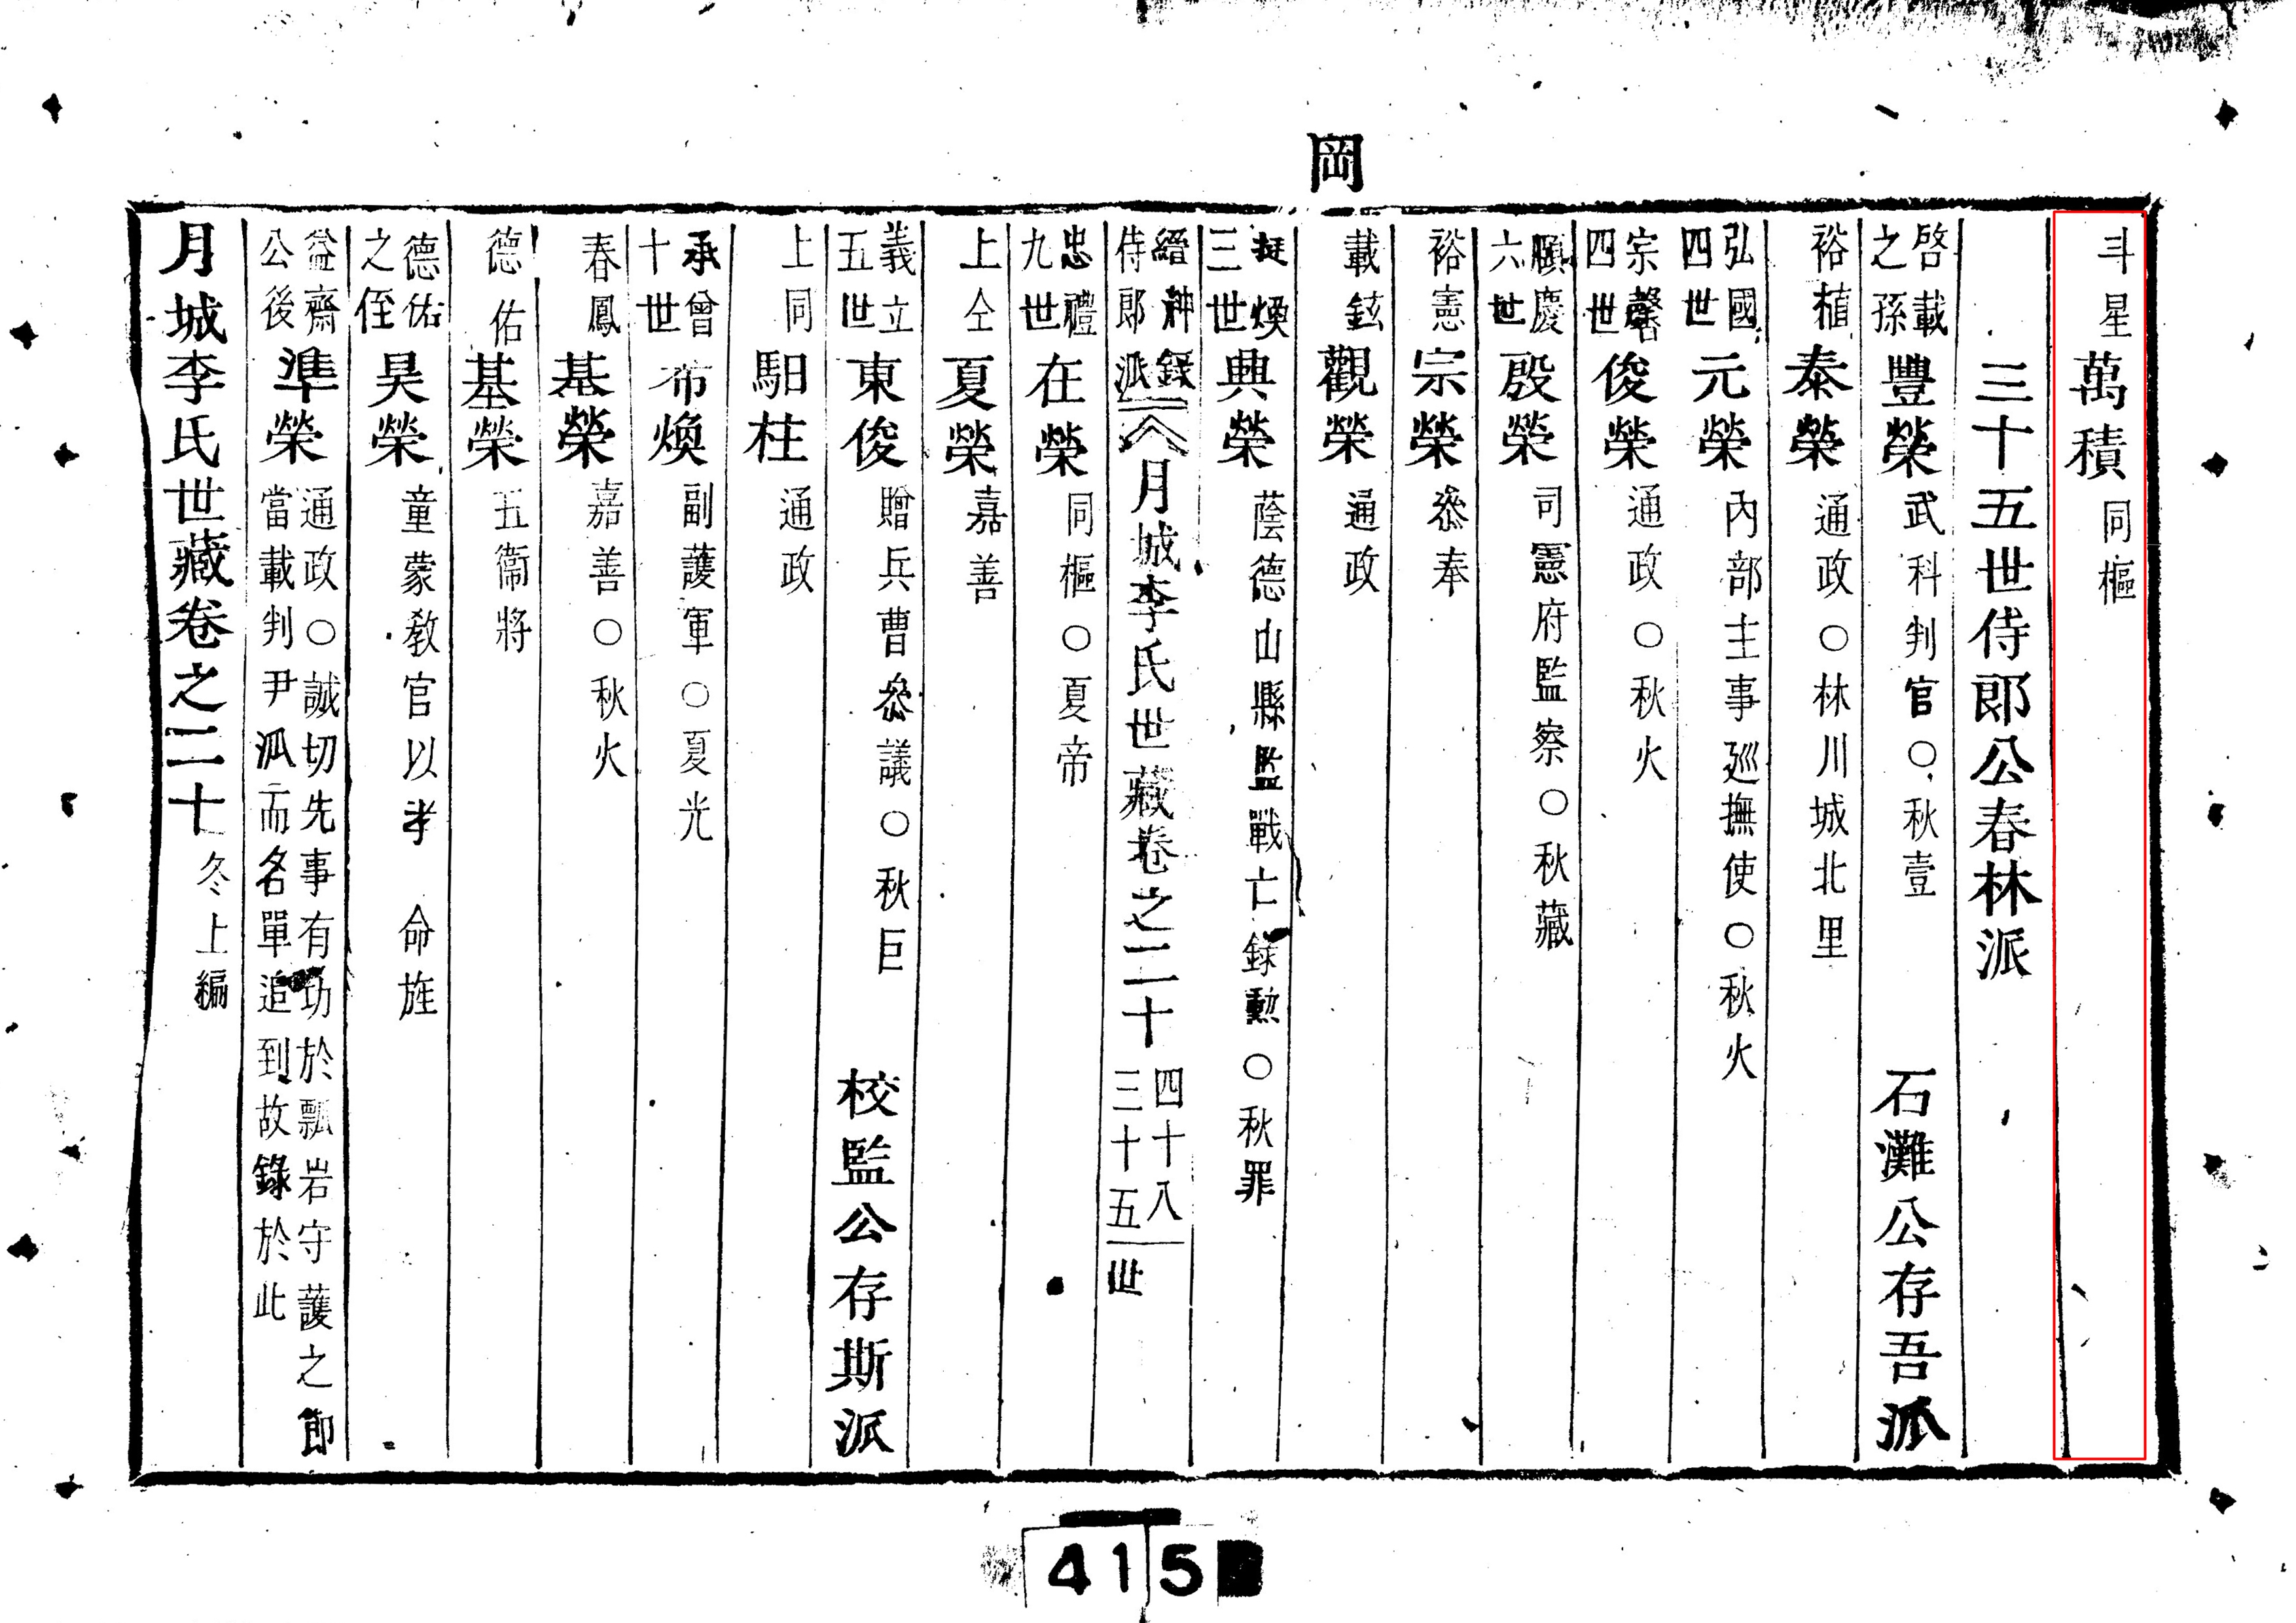 岡
斗星萬積同樞
三十五世侍郎公春林派
啓載之孫豐榮武科判官○秋壹 石灘公存吾派
裕植泰榮通政○林川城北里
弘國四世元榮內部主事廵撫使○秋火
宗馨四世俊榮通政○秋火
頤慶六世殷榮司憲府監察○秋藏
裕憲宗榮叅奉
載鉉觀榮通政
挺煥三世典榮蔭德山縣監戰亡錄勲○秋罪
縉紳錄侍郎派 月城李氏世藏卷之二十 四十八 三十五世
忠禮九世在榮同樞○夏帝
上仝夏榮嘉善
義立五世東俊贈兵曹叅議○秋巨 校監公存斯派
上同馹柱通政
承曾十世布煥副護軍○夏光
春鳳基榮嘉善○秋火
德佑基榮五衞將
德佑之侄昊榮童蒙敎官以孝 命旌
益齋公後準榮通政○誠切先事有功於瓢岩守護之節當載判尹派而名單追到故錄於此
月城李氏世藏卷之二十 冬上編
415